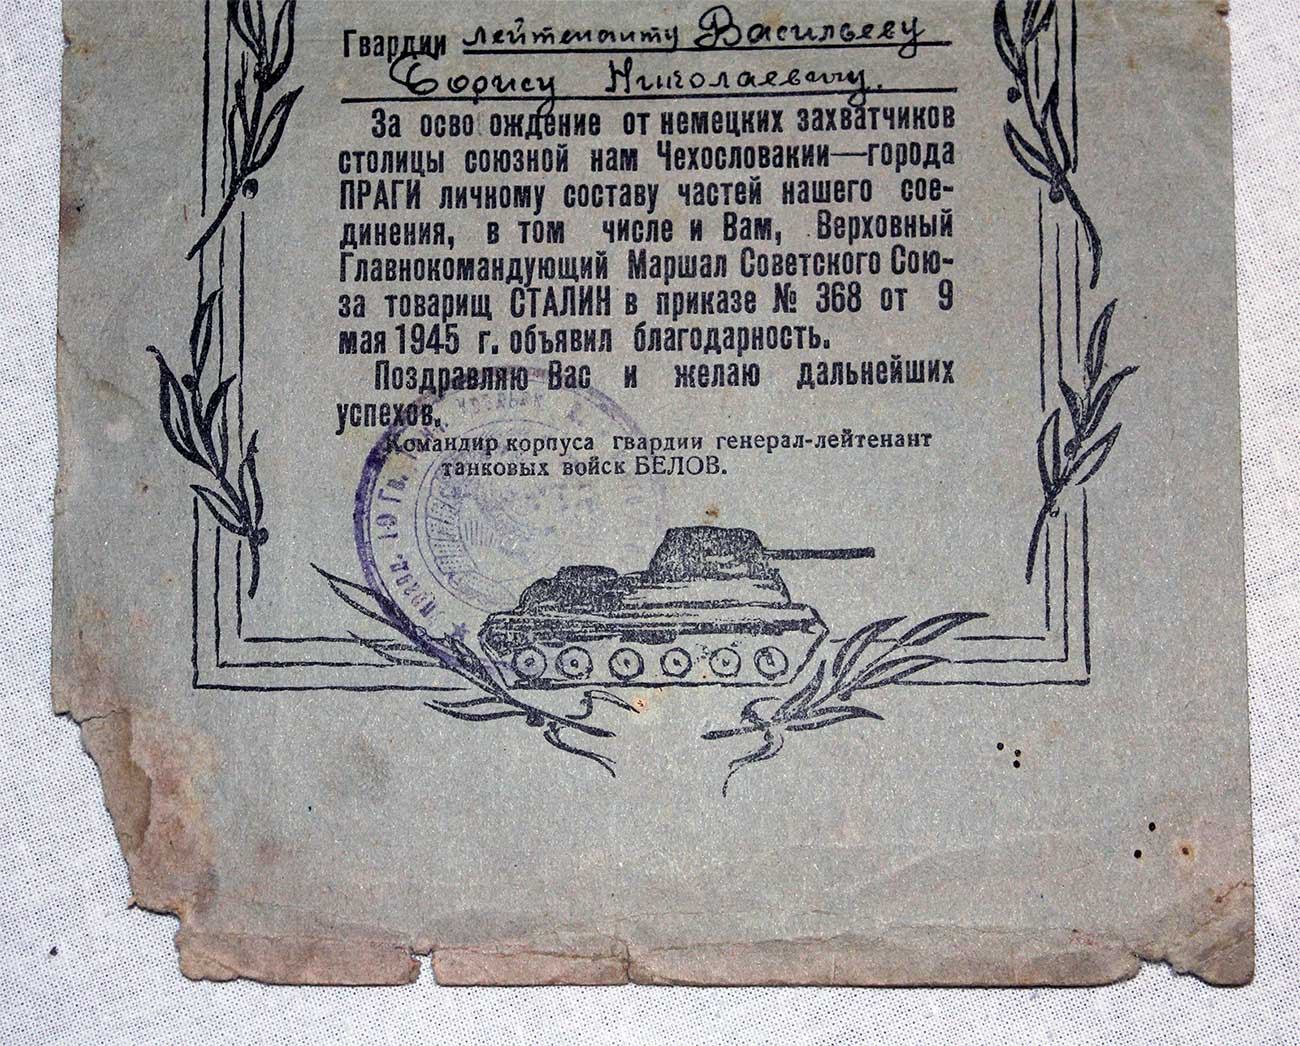 Гвардии лейтенанту Васильеву
Борису Николаевичу.
За осво ождение от немецких захватчиков
столицы союзной нам Чехословакии—города
ПРАГИ личному составу частей нашего сое-
динения, в том числе и Вам, Верховный
Главнокомандующий Маршал Советского Сою-
за товарищ СТАЛИН в приказе № 368 от 9
мая 1945 г. объявил благодарность.
Поздравляю Вас и желаю дальнейших
успехов.
Командир корпуса гвардии генерал-лейтенант
танковых войск БЕЛОВ.
10 Гв.